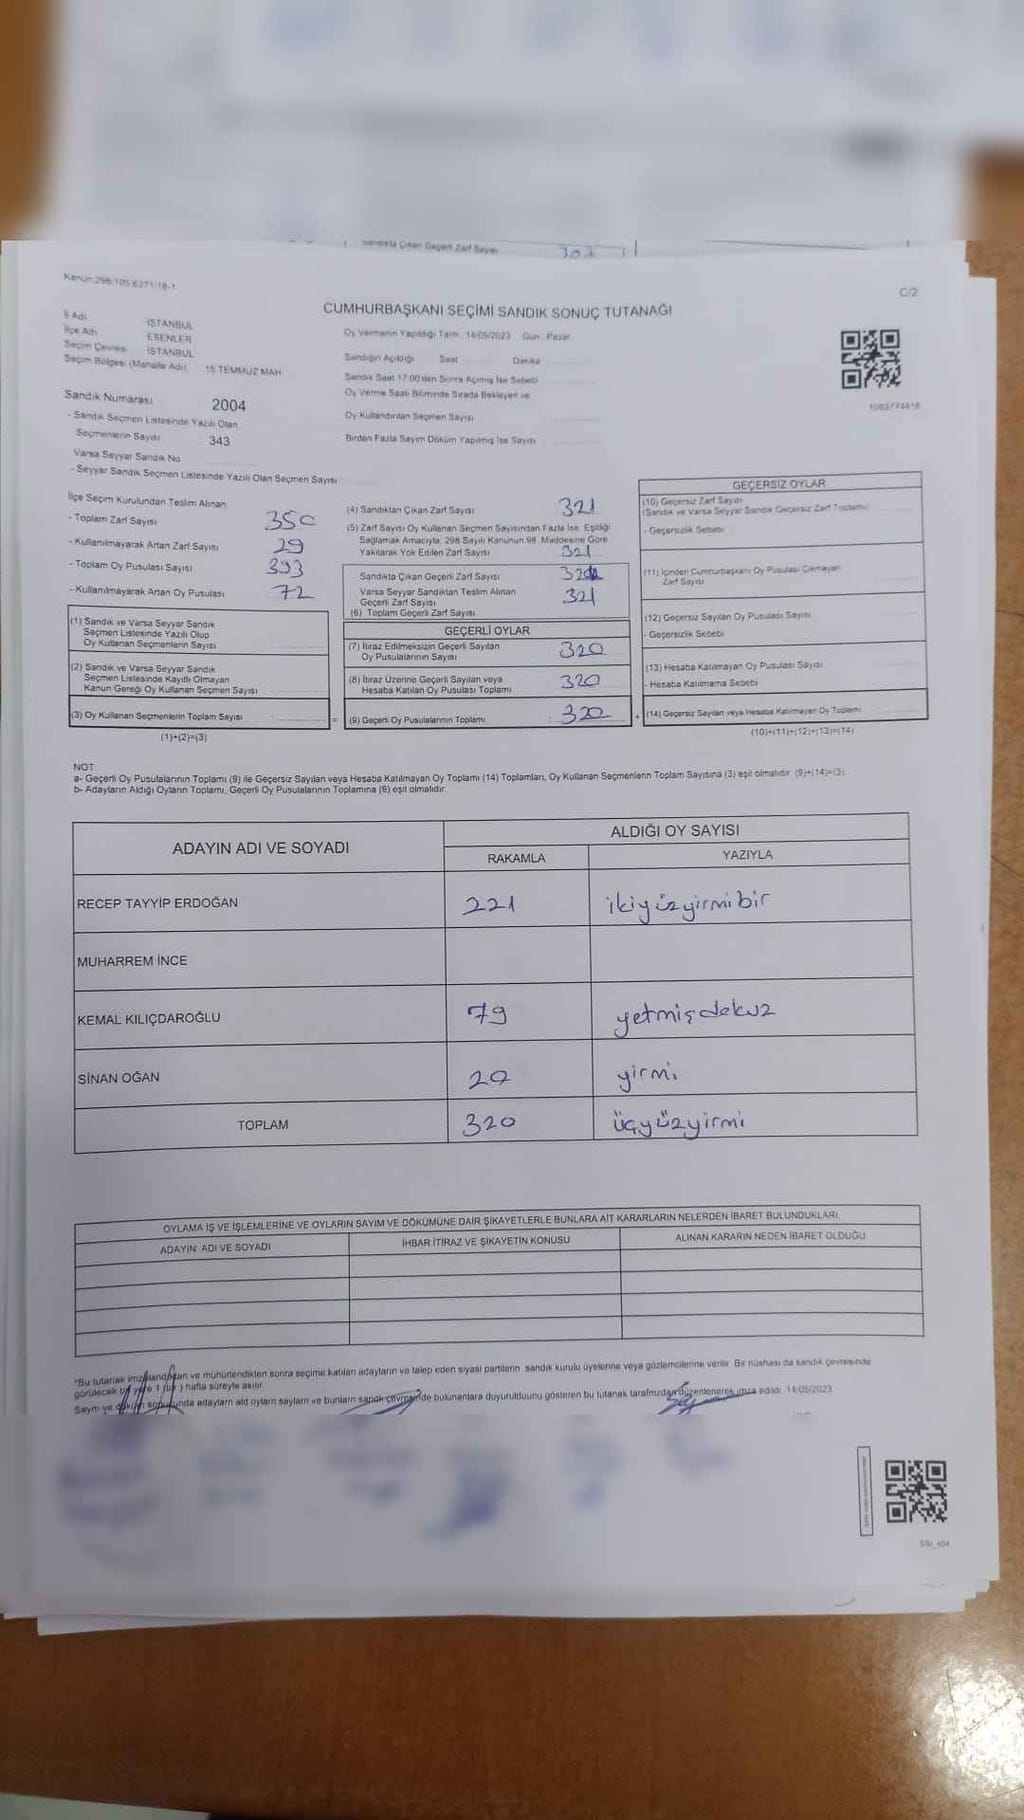 Sandıkta Çıkan Geçerli Zarf Sayısı 307
C/2
CUMHURBAŞKANI SEÇİMİ SANDIK SONUÇ TUTANAĞI
İl Adı İSTANBUL
İlçe Adı ESENLER
Seçim Çevresi İSTANBUL
Seçim Bölgesi (Mahalle Adı) 15 TEMMUZ MAH.
Sandık Numarası 2004
- Sandık Seçmen Listesinde Yazılı Olan
Seçmenlerin Sayısı 343
Varsa Seyyar Sandık No
- Seyyar Sandık Seçmen Listesinde Yazılı Olan Seçmen Sayısı
Oy Vermenin Yapıldığı Tarih: 14/05/2023 Gün: Pazar
Sandığın Açıldığı Saat Dakika
Sandık Saat 17:00'den Sonra Açılmış İse Sebebi
Oy Verme Saati Bitiminde Sırada Bekleyen ve
Oy Kullandırılan Seçmen Sayısı
Birden Fazla Sayım Döküm Yapılmış İse Sayısı
1083774416
İlçe Seçim Kurulundan Teslim Alınan:
- Toplam Zarf Sayısı 350
- Kullanılmayarak Artan Zarf Sayısı 29
- Toplam Oy Pusulası Sayısı 393
- Kullanılmayarak Artan Oy Pusulası 72
(1) Sandık ve Varsa Seyyar Sandık
Seçmen Listesinde Yazılı Olup
Oy Kullanan Seçmenlerin Sayısı
(2) Sandık ve Varsa Seyyar Sandık
Seçmen Listesinde Kayıtlı Olmayan
Kanun Gereği Oy Kullanan Seçmen Sayısı
(3) Oy Kullanan Seçmenlerin Toplam Sayısı
(1)+(2)=(3)
(4) Sandıktan Çıkan Zarf Sayısı 321
(5) Zarf Sayısı Oy Kullanan Seçmen Sayısından Fazla İse, Eşitliği
Sağlamak Amacıyla, 298 Sayılı Kanunun 98. Maddesine Göre
Yakılarak Yok Edilen Zarf Sayısı 321
Sandıkta Çıkan Geçerli Zarf Sayısı
Varsa Seyyar Sandıktan Teslim Alınan
Geçerli Zarf Sayısı 321
(6) Toplam Geçerli Zarf Sayısı
GEÇERLİ OYLAR
(7) İtiraz Edilmeksizin Geçerli Sayılan
Oy Pusulalarının Sayısı 320
(8) İtiraz Üzerine Geçerli Sayılan veya
Hesaba Katılan Oy Pusulası Toplamı 320
= (9) Geçerli Oy Pusulalarının Toplamı 320
GEÇERSİZ OYLAR
(10) Geçersiz Zarf Sayısı
(Sandık ve Varsa Seyyar Sandık Geçersiz Zarf Toplamı)
- Geçersizlik Sebebi
(11) İçinden Cumhurbaşkanı Oy Pusulası Çıkmayan
Zarf Sayısı
(12) Geçersiz Sayılan Oy Pusulası Sayısı
- Geçersizlik Sebebi
(13) Hesaba Katılmayan Oy Pusulası Sayısı
- Hesaba Katılmama Sebebi
+ (14) Geçersiz Sayılan veya Hesaba Katılmayan Oy Toplamı
(10)+(11)+(12)+(13)=(14)
NOT
a- Geçerli Oy Pusulalarının Toplamı (9) ile Geçersiz Sayılan veya Hesaba Katılmayan Oy Toplamı (14) Toplamları, Oy Kullanan Seçmenlerin Toplam Sayısına (3) eşit olmalıdır. (9)+(14)=(3)
b- Adayların Aldığı Oyların Toplamı, Geçerli Oy Pusulalarının Toplamına (9) eşit olmalıdır.
ADAYIN ADI VE SOYADI
ALDIĞI OY SAYISI
RAKAMLA YAZIYLA
RECEP TAYYİP ERDOĞAN 221 ikiyüzyirmibir
MUHARREM İNCE
KEMAL KILIÇDAROĞLU 79 yetmişdokuz
SİNAN OĞAN 20 yirmi
TOPLAM 320 üçyüzyirmi
OYLAMA İŞ VE İŞLEMLERİNE VE OYLARIN SAYIM VE DÖKÜMÜNE DAİR ŞİKAYETLERLE BUNLARA AİT KARARLARIN NELERDEN İBARET BULUNDUKLARI
ADAYIN ADI VE SOYADI İHBAR İTİRAZ VE ŞİKAYETİN KONUSU ALINAN KARARIN NEDEN İBARET OLDUĞU
"Bu tutanak imzalandıktan ve mühürlendikten sonra seçime katılan adayların ve talep eden siyasi partilerin sandık kurulu üyelerine veya gözlemcilerine verilir. Bir nüshası da sandık çevresinde
görülecek bir yere 1 (bir) hafta süreyle asılır.
Sayım ve döküm sonucunda adayların aldı oyların sayıları ve bunların sandık çevresinde bulunanlara duyurulduunu gösteren bu tutanak tarafımızdan düzenlenerek imza edildi. 14/05/2023